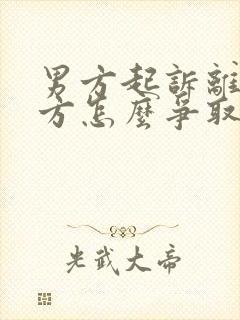 男方起訴離
方怎麼爭取
光武大帝